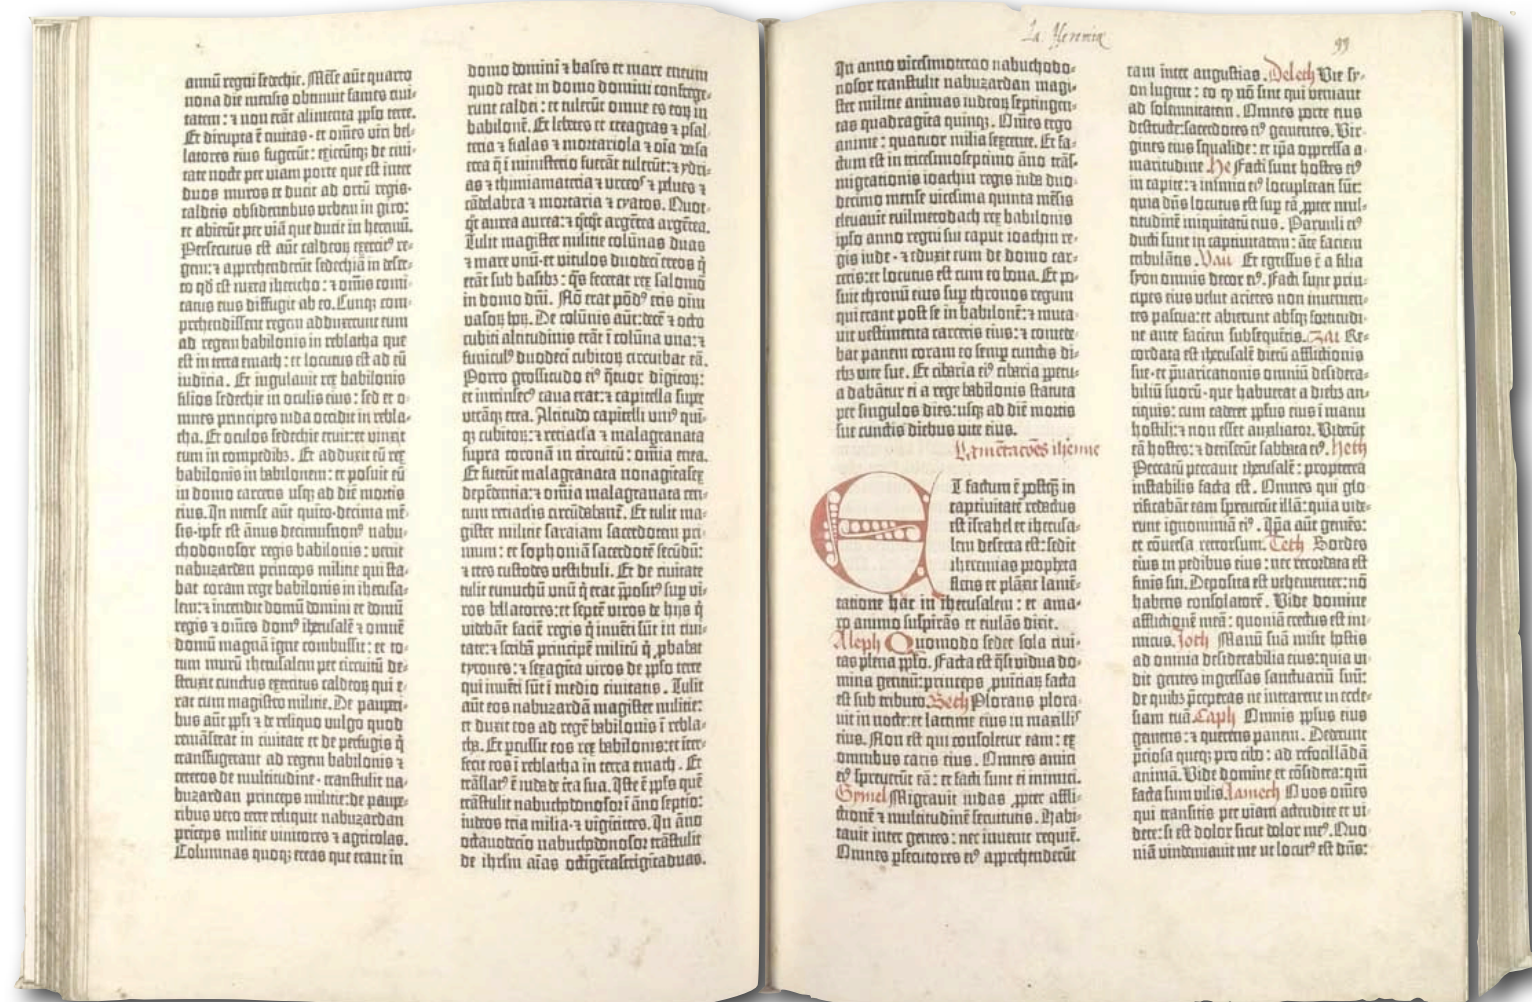 annū regni sedechie. Mēse aūt quarto
nona die mensis obtinuit fames ciui-
tatem: ⁊ non erāt alimenta pplo terre.
Et dirupta ē ciuitas · et oīnes viri bel-
latores eius fugerūt: exierūtqꝫ de ciui-
tate nocte per viam porte que est inter
duos muros et ducit ad ortū regis·
caldeis obsidentibus urbem in giro:
et abierūt per viā que ducit in heremū.
Persecutus est aūt caldeoꝝ exercitꝰ re-
gem: ⁊ apprehenderūt sedechiā in deser-
to qd est iuxta ihericho: ⁊ omīs comi-
tatus eius diffugit ab eo. Cumqꝫ com-
prehendissent regem adduxerunt eum
ad regem babilonis in reblatha que
est in terra emath: et locutus est ad eū
iudicia. Et iugulauit rex babilonis
filios sedechie in oculis eius: sed et o-
mnes principes iuda occidit in rebla-
tha. Et oculos sedechie eruit: et vinxit
eum in compedibꝫ. Et adduxit eū rex
babilonis in babilonem: et posuit eū
in domo carceris usqꝫ ad diē mortis
eius. In mense aūt quīto · decima mē-
sis · ipse est ānus decimusnonꝰ nabu-
chodonosor regis babilonis: venit
nabuzardan princeps militie qui sta-
bat coram rege babilonis in iherusa-
lem: ⁊ incendit domū domini et domū
regis ⁊ omēs domꝰ iherusalē ⁊ omnē
domū magnā igne combussit: et to-
tum murū iherusalem per circuitū de-
struxit cunctus exercitus caldeoꝝ qui e-
rat cum magistro militie. De pauperi-
bus aūt ppli ⁊ de reliquo vulgo quod
remāserat in ciuitate et de perfugis q̄
transfugerant ad regem babilonis ⁊
ceteros de multitudine · transtulit na-
buzardan princeps militie: de paupe-
ribus vero terre reliquit nabuzardan
prīceps militie vinitores ⁊ agricolas.
Columnas quoqꝫ ereas que erant in
domo domini ⁊ bases et mare eneum
quod erat in domo domini confrege-
runt caldei: et tulerūt omne es eoꝝ in
babilonē. Et lebetes et creagras ⁊ psal-
teria ⁊ fialas ⁊ mortariola ⁊ oīa vasa
erea q̄ ī ministerio fuerāt tulerūt: ⁊ ydri-
as ⁊ thimiamateria ⁊ urceos ⁊ pelues ⁊
cādelabra ⁊ mortaria ⁊ cyatos. Quot-
qt̄ aurea aurea: ⁊ q̄tqt̄ argētea argētea.
Tulit magister militie colūnas duas
⁊ mare unū · et vitulos duodecī ereos q̄
erāt sub basibꝫ: q̄s fecerat rex salomō
in domo dn̄i. Nō erat pōdꝰ eris oīm
vasoꝝ hoꝝ. De colūnis aūt: decē ⁊ octo
cubiti altitudinis erāt ī colūna una: ⁊
funiculꝰ duodecī cubitoꝝ circuibat eā.
Porro grossitudo eiꝰ q̄tuor digitoꝝ:
et intrinsecꝰ caua erat: ⁊ capitella supr
utrāqꝫ erea. Altitudo capitelli uniꝰ quī-
qꝫ cubitoꝝ: ⁊ retiacla ⁊ malagranata
supra coronā in circuitū: omīa enea.
Et fuerūt malagranata nonagītasex
depēdentia: ⁊ omīa malagranata cen-
tum retiaclis circūdabant̄. Et tulit ma-
gister militie saraiam sacerdotem pri-
mum: et sophoniā sacerdotē secūdū:
⁊ tres custodes vestibuli. Et de ciuitate
tulit eunuchū unū q̄ erat p̄positꝰ sup vi-
ros bellatores: et septē viros de hijs q̄
videbāt faciē regis q̄ inuēti sūt in ciui-
tate: ⁊ scribā principē militū q̄ p̱babat
tyrones: ⁊ sexagīta viros de pplo terre
qui inuēti sūt ī medio ciuitatis. Tulit
aūt eos nabuzardā magister militie:
et duxit eos ad regē babilonis ī rebla-
tha. Et p̱cussit eos rex babilonis: et iter-
fecit eos ī reblatha in terra emath. Et
trāslatꝰ ē iuda de tr̄a sua. Iste ē ppls quē
trāstulit nabuchodonosor ī āno septīo:
iudeos tria milia · ⁊ vīgītitres. In āno
octauodecīo nabuchodonosor trāstulit
de ihrlm aīas octīgētastrīgītaduas.
La Jheremiæ
99
In anno vicesimotercio nabuchodo-
nosor transtulit nabuzardan magi-
ster militie animas iudeoꝝ septingen-
tas quadragīta quinqꝫ. Omēs ergo
anime: quatuor milia sexcente. Et fa-
ctum est in tricesimoseptimo āno trās-
migrationis ioachin regis iuda duo-
decimo mense vicesima quinta mēsis
eleuauit euilmerodach rex babilonis
ipso anno regni sui caput ioachin re-
gis iude · ⁊ eduxit eum de domo car-
ceris: et locutus est cum eo bona. Et po-
suit thronū eius sup thronos regum
qui erant post se in babilonē: ⁊ muta-
uit vestimenta carceris eius: ⁊ comede-
bat panem coram eo semp cunctis di-
ebꝫ vite sue. Et cibaria eiꝰ cibaria p̱petu-
a dabātur ei a rege babilonis statuta
per singulos dies: usqꝫ ad diē mortis
sue cunctis diebus vite eius.
Lamētacōēs iheimie
Et factum ē postq̄ in
captiuitatē redactus
est israhel et iherusa-
lem deserta est: sedit
iheremias propheta
flens et plāxit lamē-
tatione hac in iherusalem: et ama-
ro animo suspirās et eiulās dixit.
Aleph Quomodo sedet sola ciui-
tas plena pplo. Facta est q̄si vidua do-
mina gentiū: princeps ṗuinciaꝝ facta
est sub tributo. Beth Plorans plora-
uit in nocte: et lacrime eius in maxillis
eius. Non est qui consoletur eam: ex
omnibus caris eius. Omnes amici
eiꝰ spreuerūt eā: et facti sunt ei inimici.
Gymel Migravit iudas p̱pter affli-
ctionē ⁊ multitudinē seruitutis. Habi-
tauit inter gentes: nec inuenit requiē.
Omnes p̱secutores eiꝰ apprehenderūt
eam inter angustias. Deleth Vie sy-
on lugent: eo ꝙ nō sint qui veniant
ad solennitatem. Omnes porte eius
destructe: sacerdotes eiꝰ gementes. Vir-
gines eius squalide: et ipā oppressa a-
maritudine. He Facti sunt hostes eiꝰ
in capite: ⁊ inimici eiꝰ locupletati sūt:
quia dn̄s locutus est sup eā p̱pter mul-
titudinē iniquitatū eius. Paruuli eiꝰ
ducti sunt in captiuitatem: āte faciem
tribulātis. Vau Et egressus ē a filia
syon omnis decor eiꝰ. Facti sunt prin-
cipes eius velut arietes non inuenien-
tes pascua: et abierunt absqꝫ fortitudi-
ne ante faciem subsequētis. Zai Re-
cordata est iherusalē dierū afflictionis
sue · et p̄uaricationis omniū desidera-
biliū suorū · que habuerat a diebꝫ an-
tiquis: cum caderet ppsus eius ī manu
hostili: ⁊ non esset auxiliator. Viderūt
eā hostes: ⁊ deriserūt sabbata eiꝰ. Heth
Peccatū peccauit iherusalē: propterea
instabilis facta est. Omnes qui glo-
rificabāt eam spreuerūt illā: quia vide-
runt ignominiā eiꝰ. Ipā aūt gemēs:
et cōuersa retrorsum. Teth Sordes
eius in pedibus eius: nec recordata est
finis sui. Deposita est vehementer: nō
habens consolatorē. Vide domine
afflictionē meā: quoniā erectus est ini-
micus. Joth Manū suā misit hostis
ad omnia desiderabilia eius: quia ui-
dit gentes ingressas sanctuariū suū:
de quibꝫ p̄ceperas ne intrarent in eccle-
siam tuā. Caph Omnis ppsus eius
gemens: ⁊ querens panem. Dederunt
p̄ciosa queqꝫ pro cibo: ad refocillādā
animā. Vide domine et cōsidera: qm̄
facta sum vilis. Lamech O vos omēs
qui transitis per viam attendite et vi-
dete: si est dolor sicut dolor meꝰ. Quo-
niā vindemiauit me ut locutꝰ est dn̄s: